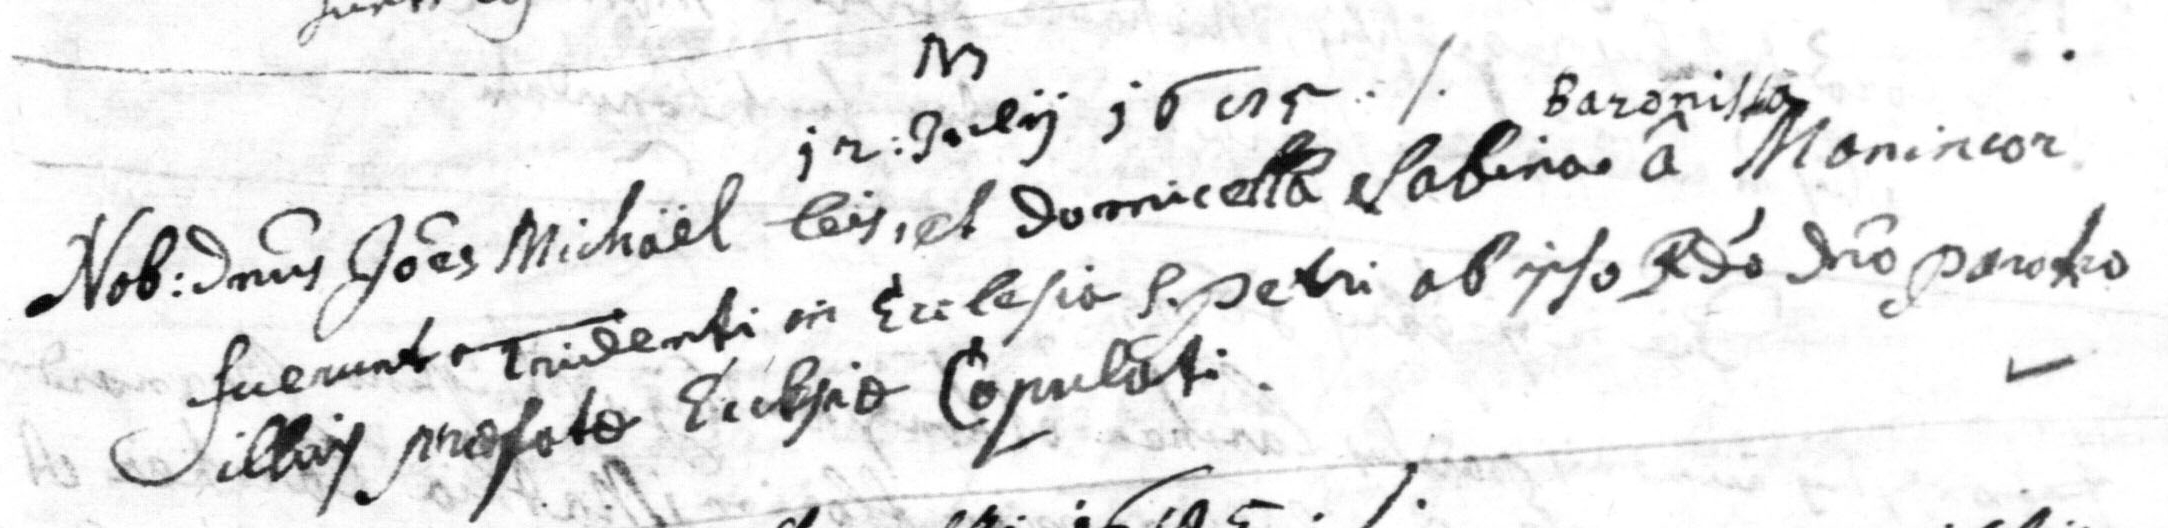 M
12: Julij 1695 ./.
Baronissa
Nob: Dnûs Joês Michaël Leis, et Domicella Sabina â Manincor
fuerunt Tridenti in Ecclesia S. Petri ab ipso Rdô Dnô parocho
illius præfatæ Ecclesiæ Copulati.